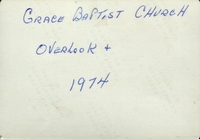 GRACE BAPTIST CHURCH
OVERLOOK +
1974